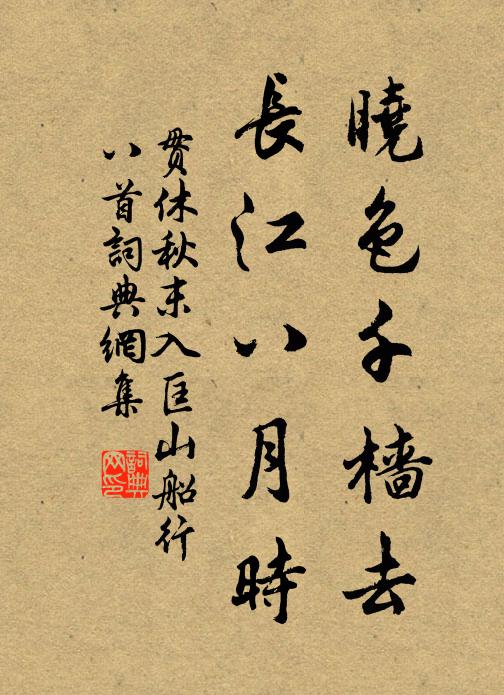 曉色千檣去
長江八月時
貫休秋末入匡山船行
八首詞典網集
詞典网印